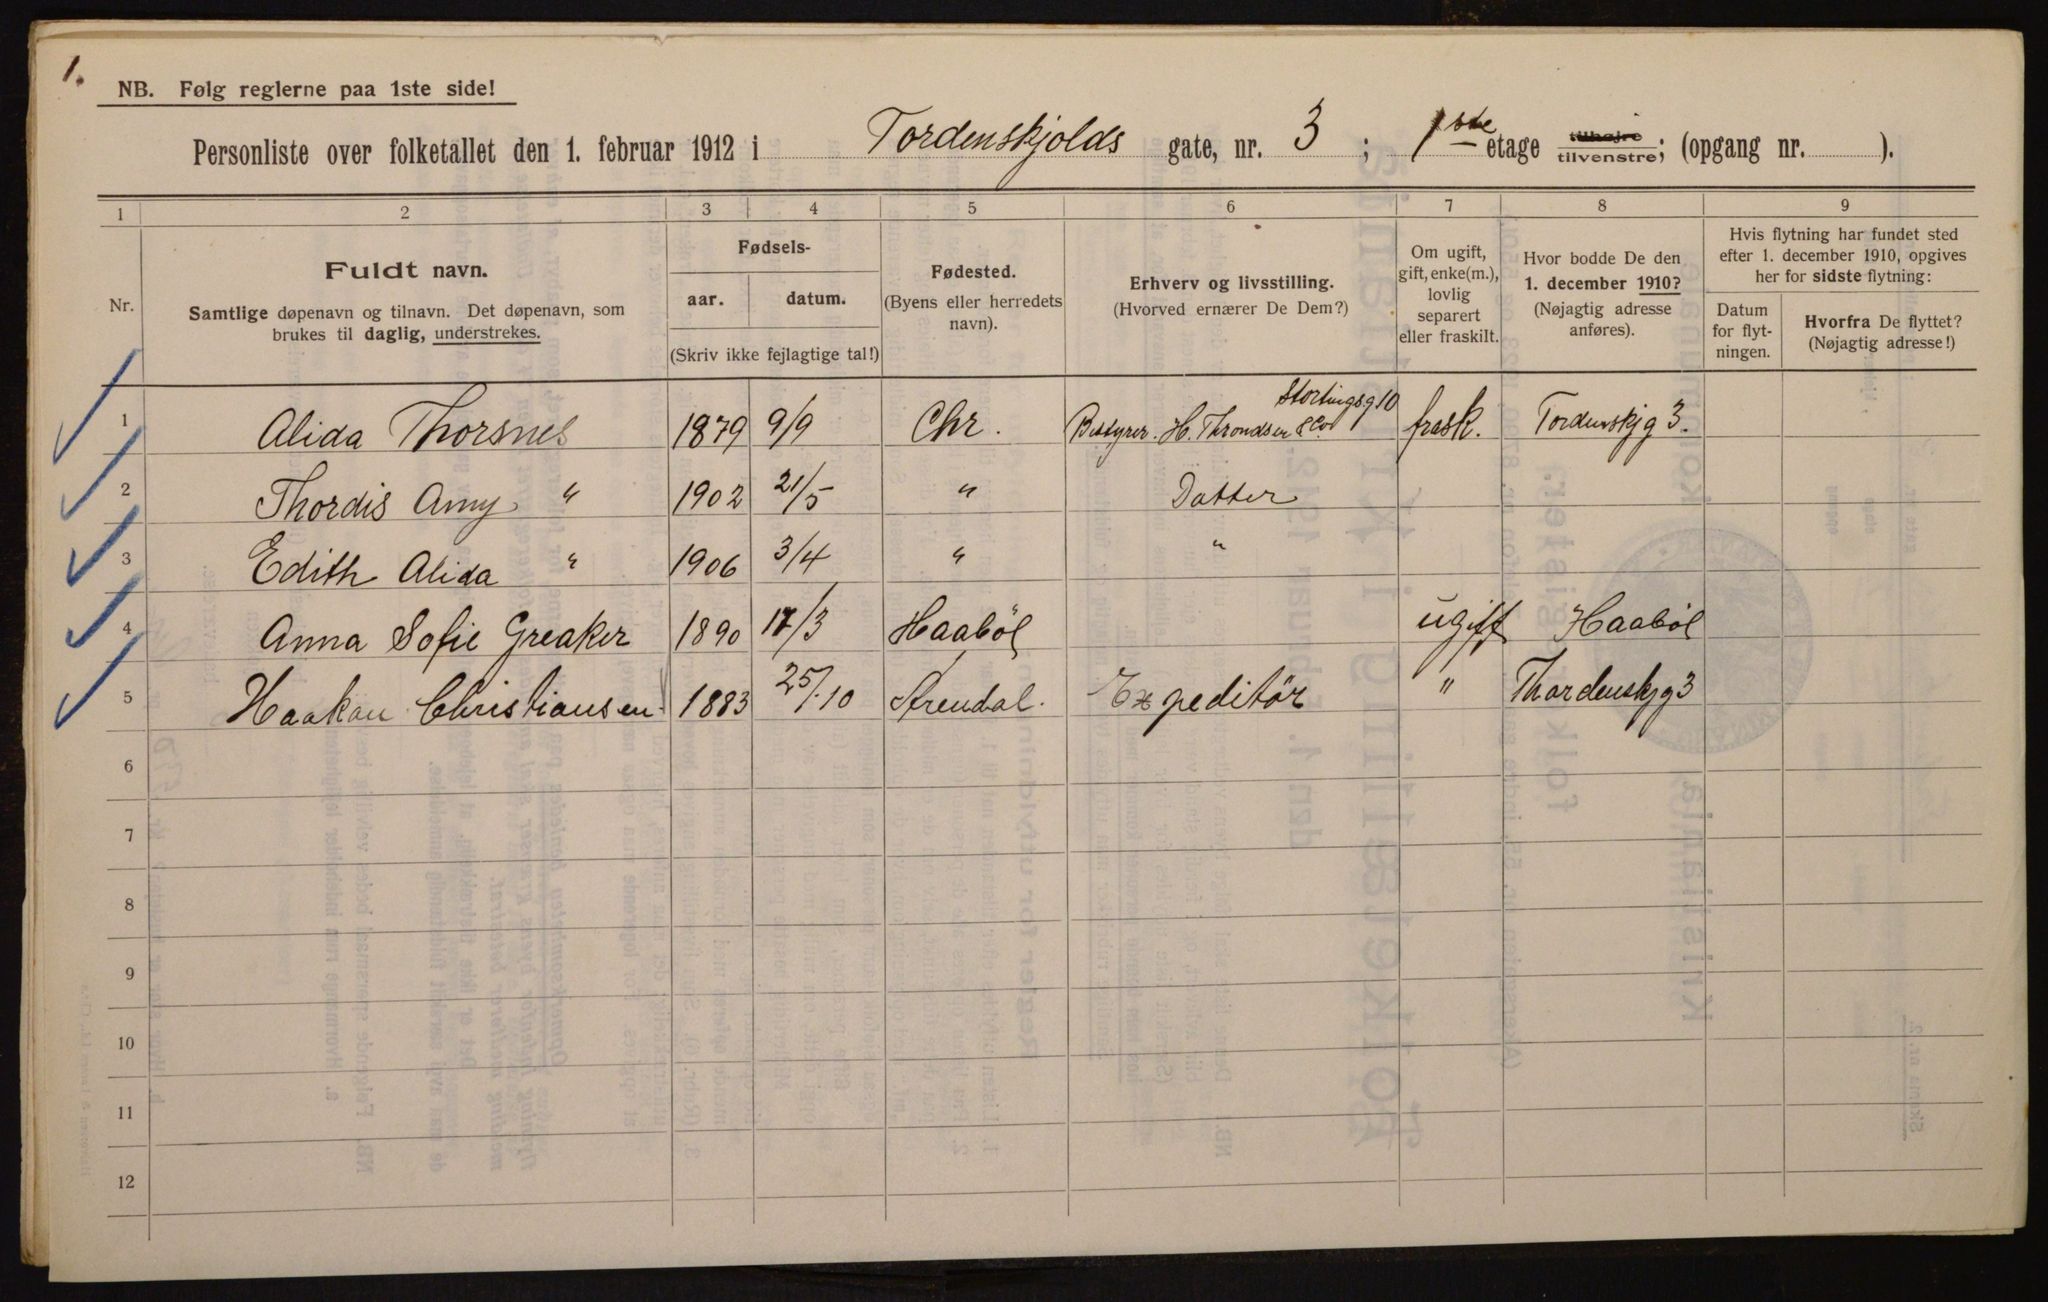 1.
NB. Følg reglerne paa 1ste side!
Personliste over folketallet den 1. februar 1912 i Tordenskjolds gate, nr. 3 ; 1ste etage tilhøjre tilvenstre; (opgang nr. ).
1 2 3 4 5 6 7 8 9
Nr.
Fuldt navn.
Samtlige døpenavn og tilnavn. Det døpenavn, som
brukes til daglig, understrekes.
Fødsels-
aar. datum.
(Skriv ikke fejlagtige tal!)
Fødested.
(Byens eller herredets
navn).
Erhverv og livsstilling.
(Hvorved ernærer De Dem?)
Om ugift,
gift, enke(m.),
lovlig
separert
eller fraskilt.
Hvor bodde De den
1. december 1910?
(Nøjagtig adresse
anføres).
Hvis flytning har fundet sted
efter 1. december 1910, opgives
her for sidste flytning:
Datum
for flyt-
ningen.
Hvorfra De flyttet?
(Nøjagtig adresse!)
Stortingsg 10
1 Alida Thorsnes 1879 9/9 Chr. Bestyrer. H. Throndsen & Co frask. Tordenskjg 3.
2 Thordis Amy " 1902 21/5 " Datter
3 Edith Alida " 1906 3/4 " "
4 Anna Sofie Greaker 1890 17/3 Haaböl ugift Haaböl
5 Haakon Christiansen 1883 25/10 Arendal. Expeditör " Thordenskjg 3
6
7
8
9
10
11
12